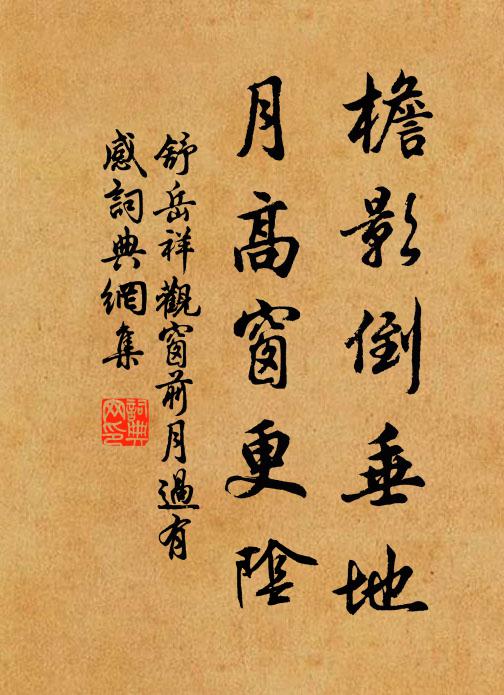 檐影倒垂地
月高窗更陰
舒岳祥觀窗前月過有
感詞典網集
詞典
网印